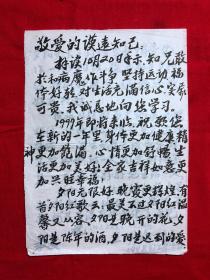 敬爱的谟远知己:
拜读10月20日手示,知兄敢
于和病魔作斗争坚持运动福
体好转,对生活充满信心实象
可贵。我诚恳地向您学习。
1999年即将来临,祝愿您
在新的一年里身体更加健康精
神更加饱满,心情更加舒畅生
活更加美好!全家吉祥如意更
加兴旺幸福!
夕阳无限好晚霞更辉煌有
首夕阳红歌云:最美不过夕阳红温
馨又从容,夕阳是晚开的花,夕
阳是陈年的酒,夕阳是迟到的爱